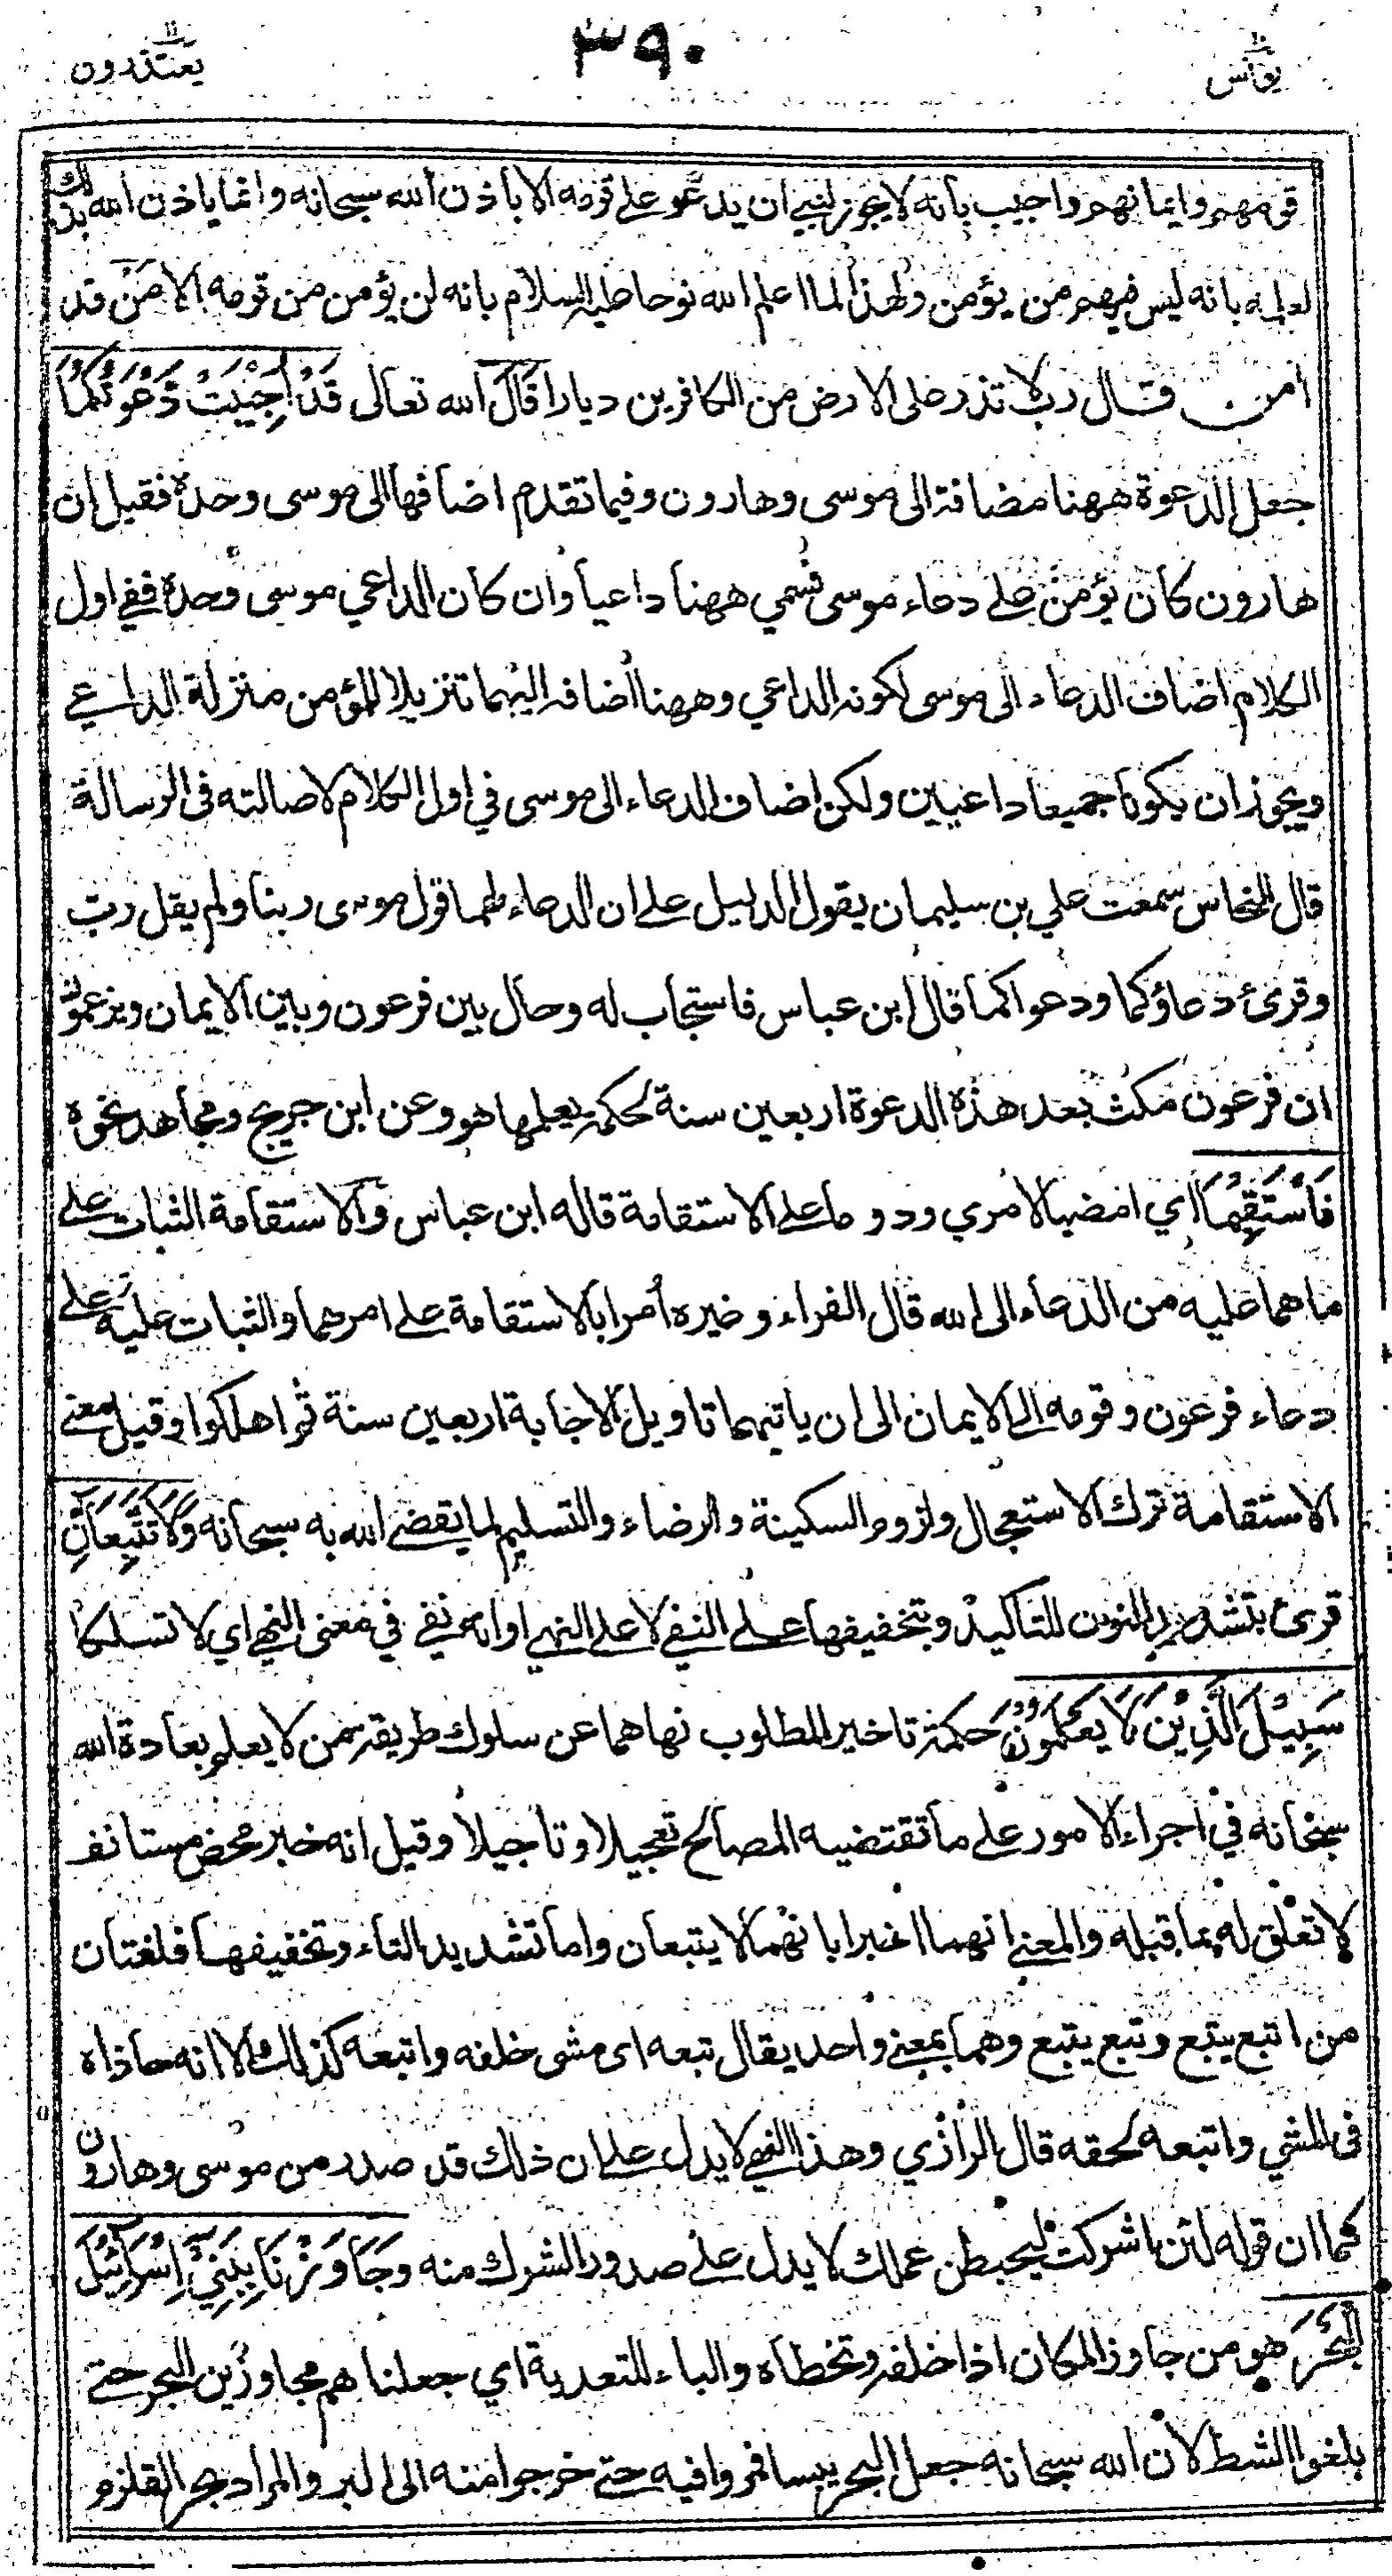 يونس ١٠
٣٩٠
يعتذرون ١١
قومهم وايمانهم واجيب بأنه لا يجوز لنبي ان يدعو على قومه الا باذن الله سبحانه وانما ياذن الله بذلك
لعلمه بانه ليس فيهم من يؤمن ولهذا لما اعلم الله نوحا عليه السلام بانه لن يؤمن من قومه الا من قد
امن قال رب لا تذر على الارض من الكافرين ديارا قال الله تعالى قَدْ اُجِيْبَتْ دَعْوَتُكُمَا
جعل الدعوة ههنا مضافة الى موسى وهارون وفيما تقدم اضافها الى موسى وحده فقيل ان
هارون كان يؤمن على دعاء موسى فسمي ههنا داعيا وان كان الداعي موسى وحده ففي اول
الكلام اضاف الدعاء الى موسى لكونه الداعي وههنا اضافه اليهما تنزيلا للمؤمن منزلة الداعي
ويجوز ان يكونا جميعا داعيين ولكن اضاف الدعاء الى موسى في اول الكلام لاصالته فى الرسالة
قال النحاس سمعت علي بن سليمان يقول الدليل على ان الدعاء لهما قول موسى ربنا ولم يقل رب
وقرئ دعاؤكما ودعواكما قال ابن عباس فاستجاب له وحال بين فرعون وبين الايمان ويزعمون
ان فرعون مكث بعد هذه الدعوة اربعين سنة لحكمة يعلمها هو وعن ابن جريج ومجاهد نحوه
فَاسْتَقِيْمَا اي امضيا لامري ودوما على الاستقامة قاله ابن عباس والاستقامة الثبات على
ما هما عليه من الدعاء الى الله قال الفراء وغيره أمرا بالاستقامة على امرهما والثبات عليه على
دعاء فرعون وقومه الى الايمان الى ان ياتيهما تاويل الاجابة اربعين سنة ثم اهلكوا وقيل معنى
الاستقامة ترك الاستعجال ولزوم السكينة والرضاء والتسليم لما يقضي الله به سبحانه وَلَا تَتَّبِعَانِّ
قرئ بتشديد النون للتاكيد وبتخفيفها على النفي لا على النهي او انه نفي في معنى النهي اي لا تسلكا
سَبِيْلَ الَّذِيْنَ لَا يَعْلَمُوْنَ حكمة تاخير المطلوب نهاهما عن سلوك طريقة من لا يعلم بعادة الله
سبحانه في اجراء الامور على ما تقتضيه المصالح تعجيلا وتاجيلا وقيل انه خبر محض مستانف
لا تعلق له بما قبله والمعنى انهما اخبرا بانهما لا يتبعان واما تشديد التاء وتخفيفها فلغتان
من اتبع يتبع وتبع يتبع وهما بمعنى واحد يقال تبعه اى مشى خلفه واتبعه كذلك الا انه حاذاه
فى المشي واتبعه لحقه قال الرازي وهذا النهي لا يدل على ان ذلك قد صدر من موسى وهارون
كما ان قوله لئن اشركت ليحبطن عملك لا يدل على صدور الشرك منه وَجَاوَزْنَا بِبَنِيْٓ اِسْرَآئِيْلَ
الْبَحْرَ هو من جاوز المكان اذا خلفه وتخطاه والباء للتعدية اي جعلناهم مجاوزين البحر حتى
بلغوا الشط لان الله سبحانه جعل البحر يبسا فمروا فيه حتى خرجوا منه الى البر والمراد بحر القلزم